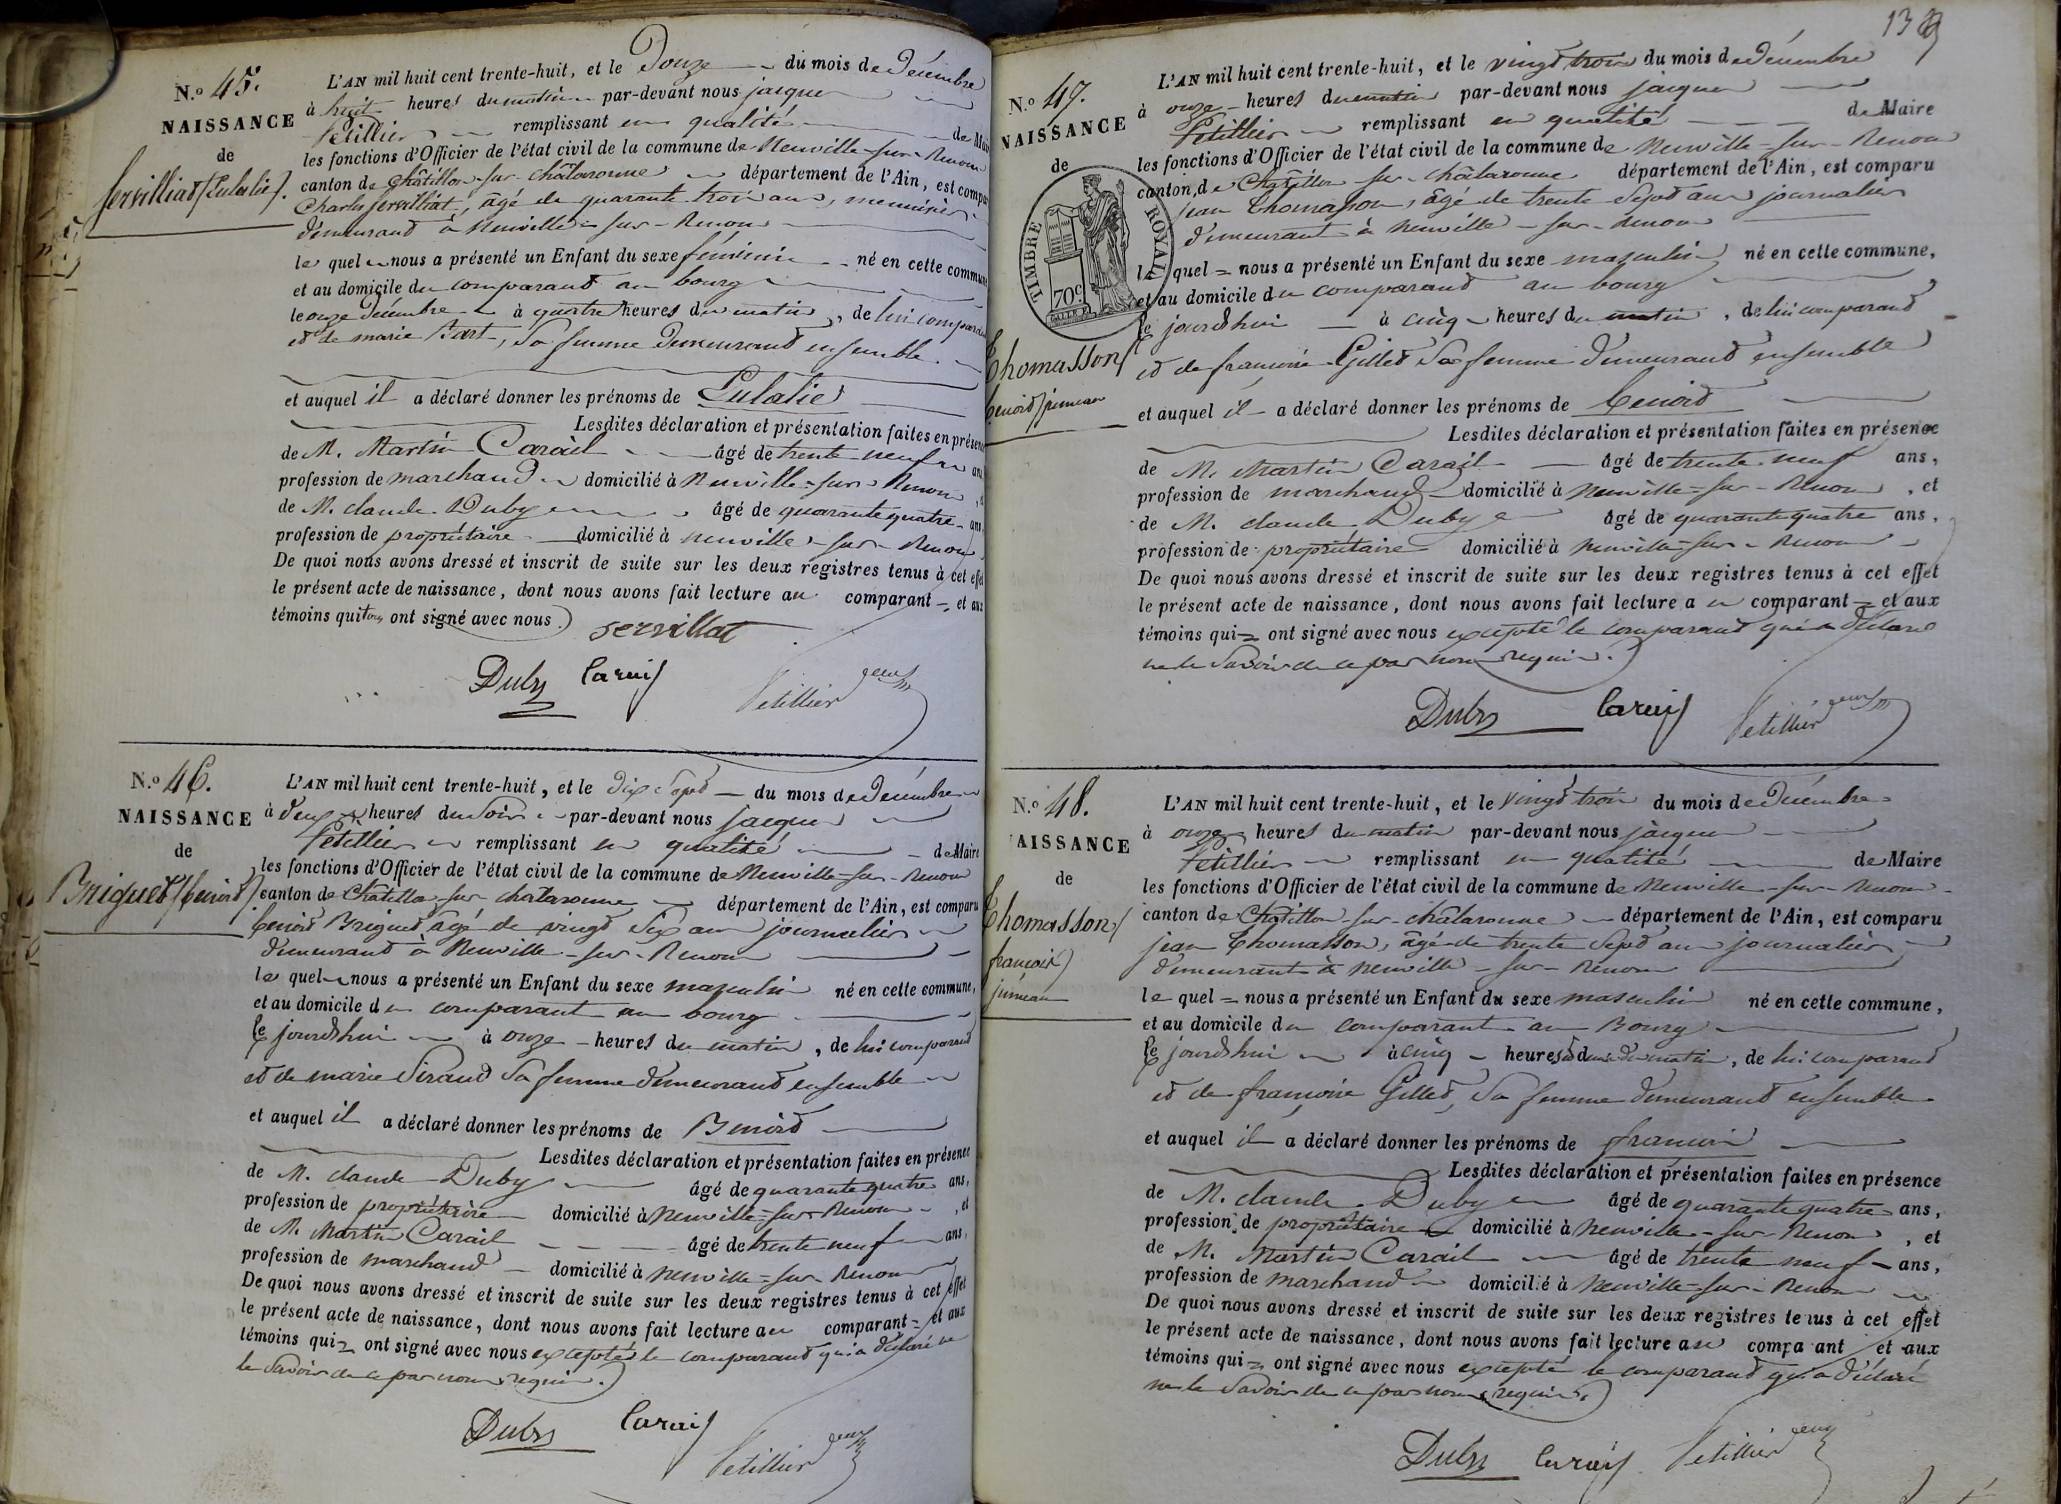 N.º 45.
NAISSANCE
de
Servilliat (Eulalie).
L'AN mil huit cent trente-huit, et le Douze du mois de Décembre
à huit heures du matin par-devant nous jacque
Petillier remplissant en qualité de Mai
les fonctions d'Officier de l'état civil de la commune de Neuville-sur-Renon
canton de Châtillon-sur-châlaronne département de l'Ain, est compar
Charle Servilliat, âgé de quarante trois ans, menuisier
demeurand à Neuville-sur-Renon
le quel nous a présenté un Enfant du sexe féminin né en cette commune
et au domicile du comparand au bourg
le onze Décembre à quatre heures du matin, de lui comparand
et de marie Bart, Sa femme Demeurand ensemble.
et auquel il a déclaré donner les prénoms de Eulalie
Lesdites déclaration et présentation faites en présence
de M. Martin Carail âgé de trente neuf ans
profession de marchand domicilié à Neuville-sur-Renon
de M. claude Duby âgé de quarante quatre ans,
profession de propriétaire domicilié à neuville-sur-Renon
De quoi nous avons dressé et inscrit de suite sur les deux registres tenus à cet effet
le présent acte de naissance, dont nous avons fait lecture au comparant et aux
témoins qui tous ont signé avec nous.
Servillat
Duby Carail Petillier
N.º 46.
NAISSANCE
de
Brigued (benoid)
L'AN mil huit cent trente-huit, et le Dix Sept du mois de Décembre
à deux heures du Soir par-devant nous jacque
Petillier remplissant en qualité de Maire
les fonctions d'Officier de l'état civil de la commune de Neuville-sur-Renon
canton de Châtillon-sur-chalaronne département de l'Ain, est comparu
benoid Brigued âgé de vingt Six ans journalier
demeurand à Neuville-sur-Renon
le quel nous a présenté un Enfant du sexe masculin né en cette commune,
et au domicile du comparant au bourg
le jourdhui à onze heures du matin, de lui comparand
et de marie Siraud Sa femme demeurand ensemble
et auquel il a déclaré donner les prénoms de Benoid
Lesdites déclaration et présentation faites en présence
de M. claude Duby âgé de quarante quatre ans,
profession de propriétaire domicilié à Neuville-sur-Renon, et
de M. Martin Carail âgé de trente neuf ans,
profession de marchand domicilié à neuville-sur-Renon
De quoi nous avons dressé et inscrit de suite sur les deux registres tenus à cet effet
le présent acte de naissance, dont nous avons fait lecture au comparant et aux
témoins qui ont signé avec nous excepté le comparand qui a déclaré ne
le Savoir de ce par nous requis.
Duby Carail Petillier
N.º 47.
NAISSANCE
de
TIMBRE ROYAL
70 c
Thomasson
benoid jumeau
L'AN mil huit cent trente-huit, et le vingt trois du mois de Décembre
à onze heures du matin par-devant nous jacque
Petillier remplissant en qualité de Maire
les fonctions d'Officier de l'état civil de la commune de Neuville-sur-Renon
canton de Châtillon-sur-châlaronne département de l'Ain, est comparu
jean Thomasson, âgé de trente Sept ans journalier
demeurant à neuville-sur-Renon
le quel nous a présenté un Enfant du sexe masculin né en cette commune,
et au domicile du comparand au bourg
le jourdhui à cinq heures du matin, de lui comparand
et de françoise Gilled Sa femme demeurand ensemble
et auquel il a déclaré donner les prénoms de benoid
Lesdites déclaration et présentation faites en présence
de M. Martin Carail âgé de trente neuf ans,
profession de marchand domicilié à neuville-sur-Renon, et
de M. claude Duby âgé de quarante quatre ans,
profession de propriétaire domicilié à neuville-sur-Renon
De quoi nous avons dressé et inscrit de suite sur les deux registres tenus à cet effet
le présent acte de naissance, dont nous avons fait lecture au comparant et aux
témoins qui ont signé avec nous excepté le comparand qui a déclaré
ne le Savoir de ce par nous requis.
Duby Carail Petillier
N.º 48.
NAISSANCE
de
Thomasson
françois
jumeau
L'AN mil huit cent trente-huit, et le vingt trois du mois de Décembre
à onze heures du matin par-devant nous jacque
Petillier remplissant en qualité de Maire
les fonctions d'Officier de l'état civil de la commune de Neuville-sur-Renon
canton de Châtillon-sur-châlaronne département de l'Ain, est comparu
jean Thomasson, âgé de trente Sept ans journalier
demeurant à neuville-sur-Renon
le quel nous a présenté un Enfant du sexe masculin né en cette commune,
et au domicile du comparant au Bourg
le jourdhui à cinq heures et demie du matin, de lui comparand
et de françoise Gilled, Sa femme demeurand ensemble
et auquel il a déclaré donner les prénoms de françois
Lesdites déclaration et présentation faites en présence
de M. claude Duby âgé de quarante quatre ans,
profession de propriétaire domicilié à neuville-sur-Renon, et
de M. Martin Carail âgé de trente neuf ans,
profession de marchand domicilié à Neuville-sur-Renon
De quoi nous avons dressé et inscrit de suite sur les deux registres tenus à cet effet
le présent acte de naissance, dont nous avons fait lecture au comparant et aux
témoins qui ont signé avec nous excepté le comparand qui a déclaré
ne le Savoir de ce par nous requis.
Duby Carail Petillier